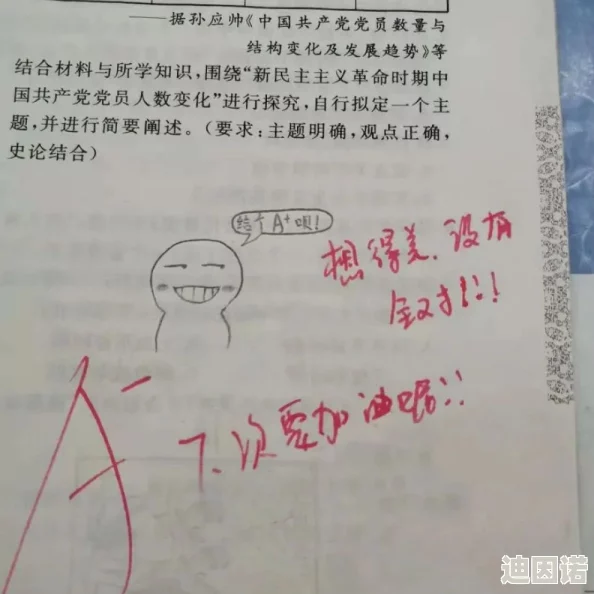 ——据孙应帅《中国共产党党员数量与
结构变化及发展趋势》等
结合材料与所学知识，围绕“新民主主义革命时期中
国共产党党员人数变化”进行探究，自行拟定一个主
题，并进行简要阐述。（要求：主题明确，观点正确，
史论结合）
给个A⁺呗！
想得美，没有
全对!!!
A⁻
下次要加油哦!!
迪因诺